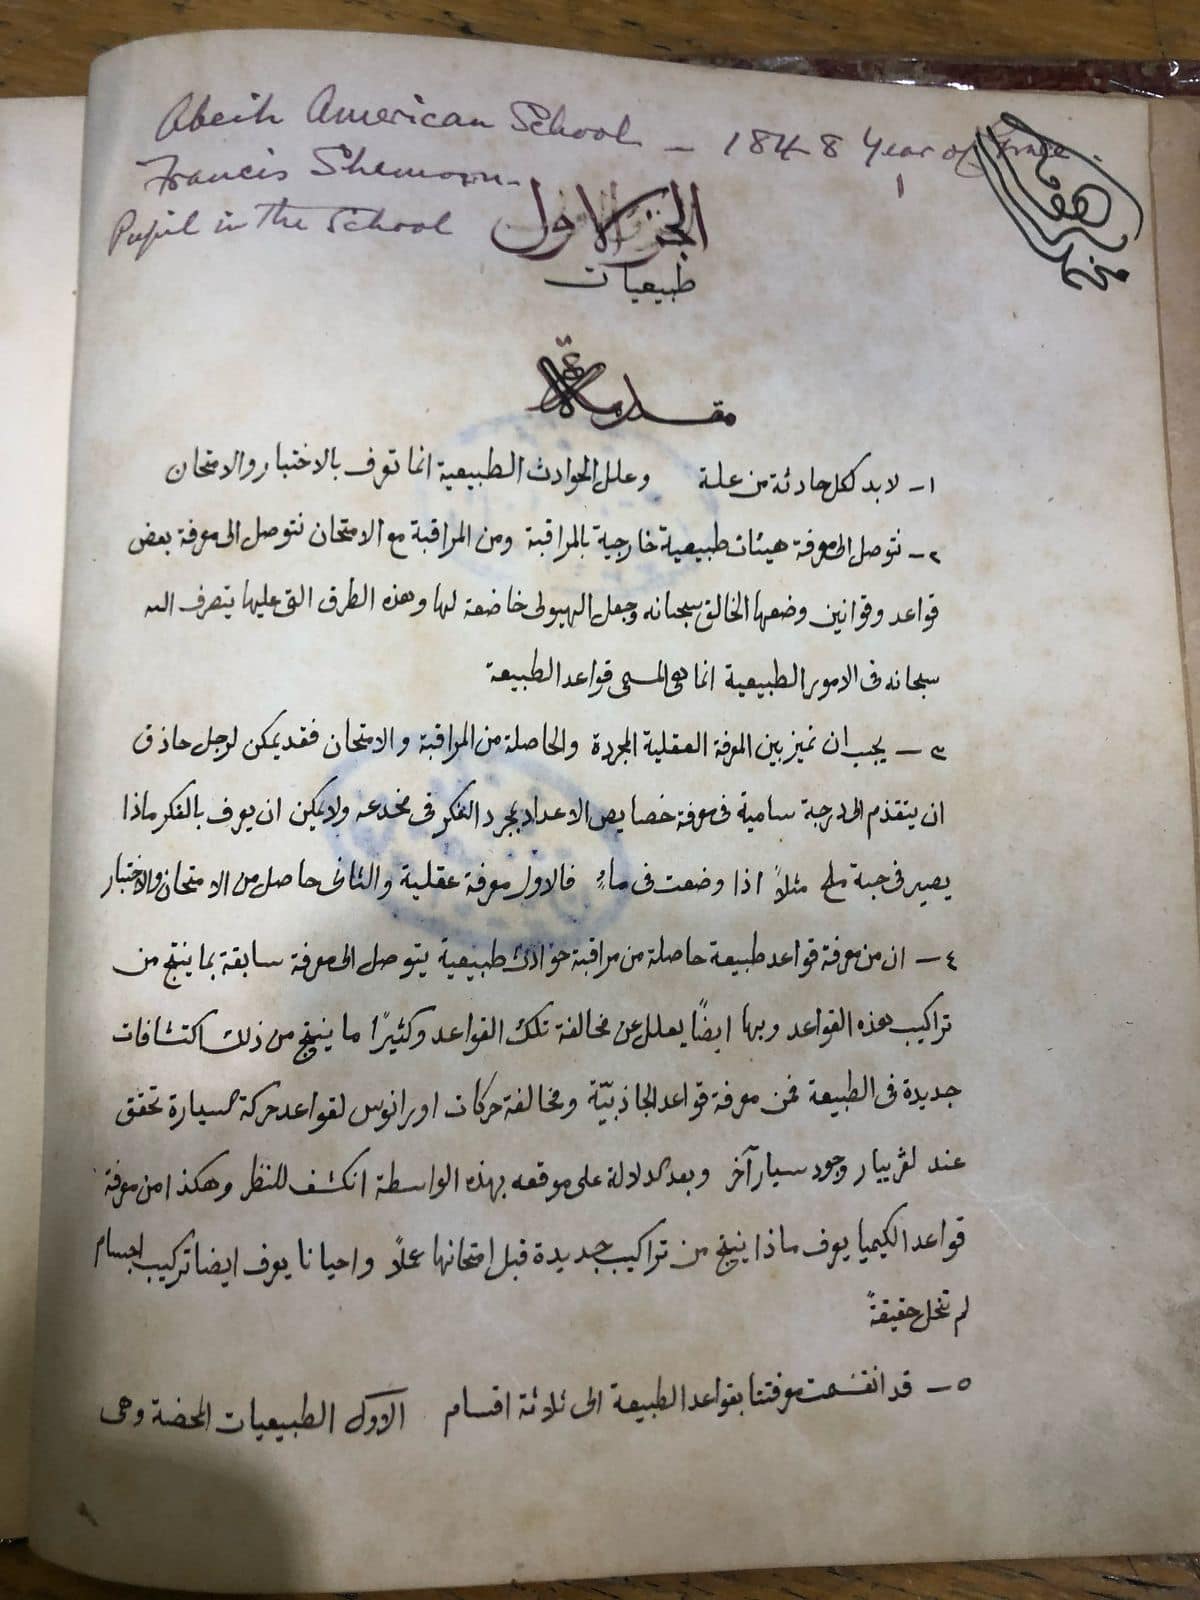 Abeih American School - 1848 Year of Grace.
Francis Shemoun
1
Pupil in the School
الجزء الاول
طبيعيات
مقدمة
١ــ لا بد لكل حادثة من علة وعلل الحوادث الطبيعية انما تعرف بالاختبار والامتحان
٢ــ نتوصل الى معرفة هيئات طبيعية خارجية بالمراقبة ومن المراقبة مع الامتحان نتوصل الى معرفة بعض
قواعد وقوانين وضعها الخالق سبحانه وجعل الهيولى خاضعة لها وهذه الطرق التى عليها يتصرف الله
سبحانه فى الامور الطبيعية انما هى المسمى قواعد الطبيعة
٣ــ يجب ان نميز بين المعرفة العقلية المجردة والحاصلة من المراقبة والامتحان فقد يمكن لرجل حاذق
ان يتقدم الى درجة سامية فى معرفة خصايص الاعداد بمجرد الفكر فى مخدعه ولا يمكن ان يعرف بالفكر ماذا
يصير فى حبة ملح مثلاً اذا وضعت فى ماءٍ فالاول معرفة عقلية والثانى حاصل من الامتحان والاختبار
٤ــ ان من معرفة قواعد طبيعة حاصلة من مراقبة حوادث طبيعية يتوصل الى معرفة سابقة بما ينتج من
تراكيب هذه القواعد وبها ايضًا يعلل عن مخالفة تلك القواعد وكثيرًا ما ينتج من ذلك اكتشافات
جديدة فى الطبيعة فمن معرفة قواعد الجاذبيّة ومخالفة حركات اورانوس لقواعد حركة السيارة تحقق
عند لفرييار وجود سيار آخر وبعد الدلالة على موقعه بهذه الواسطة انكشف للنظر وهكذا من معرفة
قواعد الكيميا يعرف ماذا ينتج من تراكيب جديدة قبل امتحانها عملاً واحيانا يعرف ايضا تركيب اجسام
لم تنحل حقيقةً
٥ــ قد انقسمت معرفتنا بقواعد الطبيعة الى ثلاثة اقسام الاول الطبيعيات المحضة وهى